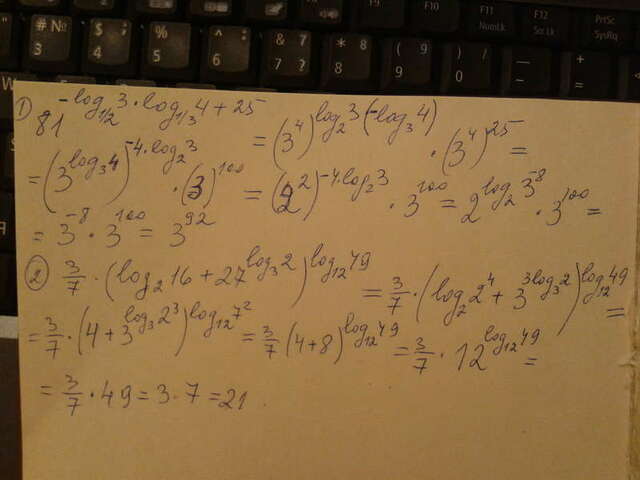 "
# №
3
$ ;
4
%
5
^ :
6
& ?
7
* 8
8
( 9
9
) 0
/
F9
F10
F11
NumLk
F12
ScrLk
PrtSc
SysRq
—
-
+
=
W
1) 81^(-log_{1/2} 3 · log_{1/3} 4 + 25) = (3^4)^(log_2 3 (-log_3 4)) · (3^4)^25 =
= (3^(log_3 4))^(-4·log_2 3) · (3)^100 = (2^2)^(-4·log_2 3) · 3^100 = 2^(log_2 3^(-8)) · 3^100 =
= 3^(-8) · 3^100 = 3^92
2) 3/7 · (log_2 16 + 27^(log_3 2))^(log_12 49) = 3/7 · (log_2 2^4 + 3^(3log_3 2))^(log_12 49) =
= 3/7 · (4 + 3^(log_3 2^3))^(log_12 7^2) = 3/7 (4+8)^(log_12 49) = 3/7 · 12^(log_12 49) =
= 3/7 · 49 = 3·7 = 21.